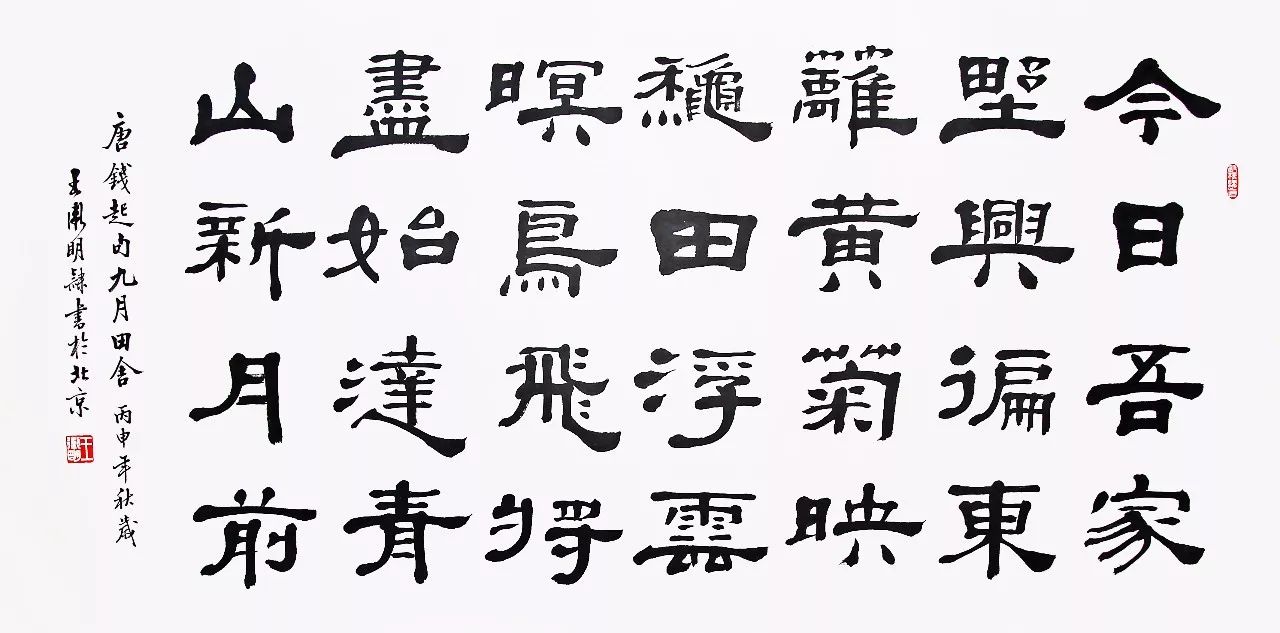 今日吾家
野興徧東
籬黃菊映
龝田浮雲
暝鳥飛將
盡始達青
山新月前
唐錢起句九月田舍 丙申年秋歲
王明隸書於北京